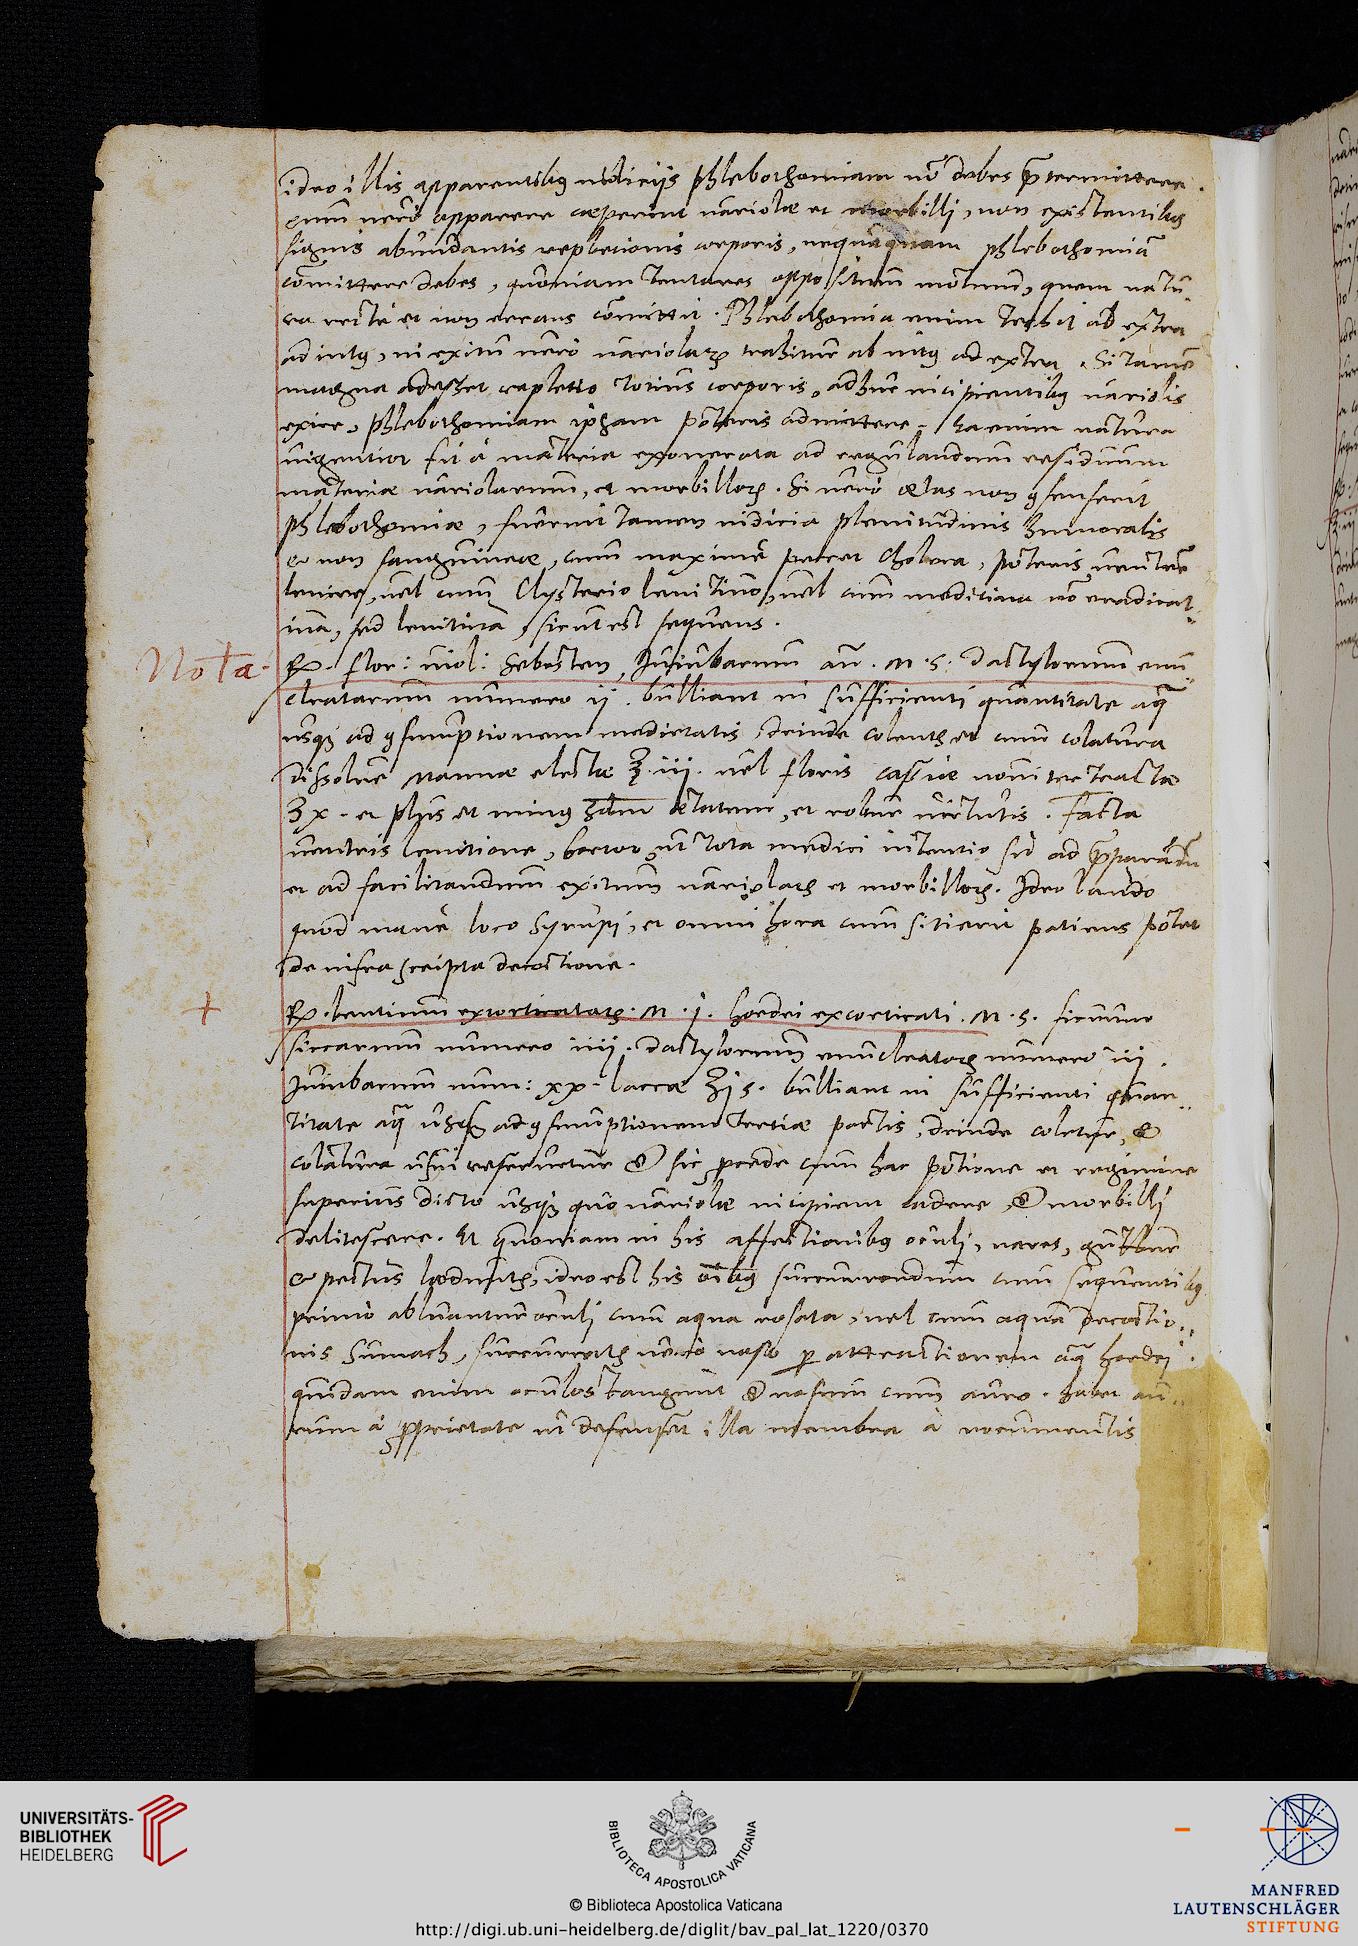 ideo illis apparentibꝰ indicijs phlebothomiam nō debes p̄termittere.
Cum uerò apparere cæperint uariolæ et morbilli, non existentibꝰ
signis abundantis repletionis corporis, nequaquam phlebothomiā
cōmittere debes, quoniam tentares oppositum motum, quem natu-
ra recte et non errans cōmittit. Phlebothomia enim trahit ab extra
ad intꝰ, in exitu uerò uariolarꝝ trahitur ab intꝰ ad extra. Si tamē
magna adesset repletio totius corporis, adhuc incipientibꝰ uariolis
exire, phlebothomiam ipsam poteris admittere. Ita enim natura
uigentior fit à materia exonerata ad regulandum residuum
materiæ uariolarum, et morbillorꝝ. Si uerò ætas non ꝯsenserit
phlebothomiæ, fuerint tamen indicia plenitudinis humoralis
et non sanguineæ, cum maximè peccet cholera, poteris uentrē
lenire, uel cum Clysterio lenitiuo, uel cum medicina nō eradicat-
iua, sed lenitiua, sicut est sequens.
Nota.
℞. flor: uiol: sebesten, Iuiubarum añ. M. s. dactylorum enu-
cleatarum numero ij. bulliant in sufficienti quantitate aqꝫ
usqꝫ ad ꝯsumptionem medietatis, deinde colentꝰ et cum colatura
dissolue mannæ electæ ℥. iij. uel floris cassiæ nouiter tractæ
ʒx. et plus et minꝰ scdm ætatem, et robur uirtutis. Facta
uentris lenitione, hortor, ut tota medici intentio sit ad p̄parādū
et ad facilitandum exitum uariolarꝝ et morbillorꝝ. Ideo laudo
quod manè loco Syrupi, et omni hora cum sitierit patiens potet
de infrascripta decoctione.
+
℞. lentium excorticatarꝝ. M. j. hordei excorticati. M. s. ficuum
siccarum numero iiij. dactylorum enucleatorꝝ numero iij.
Iuiubarum num: xx. laccæ ℥j s. bulliant in sufficienti quan-
titate aqꝫ usqꝫ ad ꝯsumptionem tertiæ partis, deinde coletur, &
colatura usui reseruetur & sic procede cum hac potione et regimine
superius dicto usqꝫ quo uariolæ incipiant cadere, & morbilli
delitescere. Et quoniam in his affectionibꝰ oculi, nares, guttur
et pectus lædunꝰ, ideo est his oībꝰ succurrendum cum sequentibꝰ
primò abluantur oculi cum aqua rosata, uel cum aqua decoctio-
nis Sumach, succurratꝰ uerò naso p̱ attractionem aqꝫ hordei.
quidam enim oculos tangunt & nasum cum auro. habet au-
rum à p̱prietate ut defenset illa membra à nocumentis
UNIVERSITÄTS-
BIBLIOTHEK
HEIDELBERG
BIBLIOTECA APOSTOLICA VATICANA
© Biblioteca Apostolica Vaticana
http://digi.ub.uni-heidelberg.de/diglit/bav_pal_lat_1220/0370
MANFRED
LAUTENSCHLÄGER
STIFTUNG